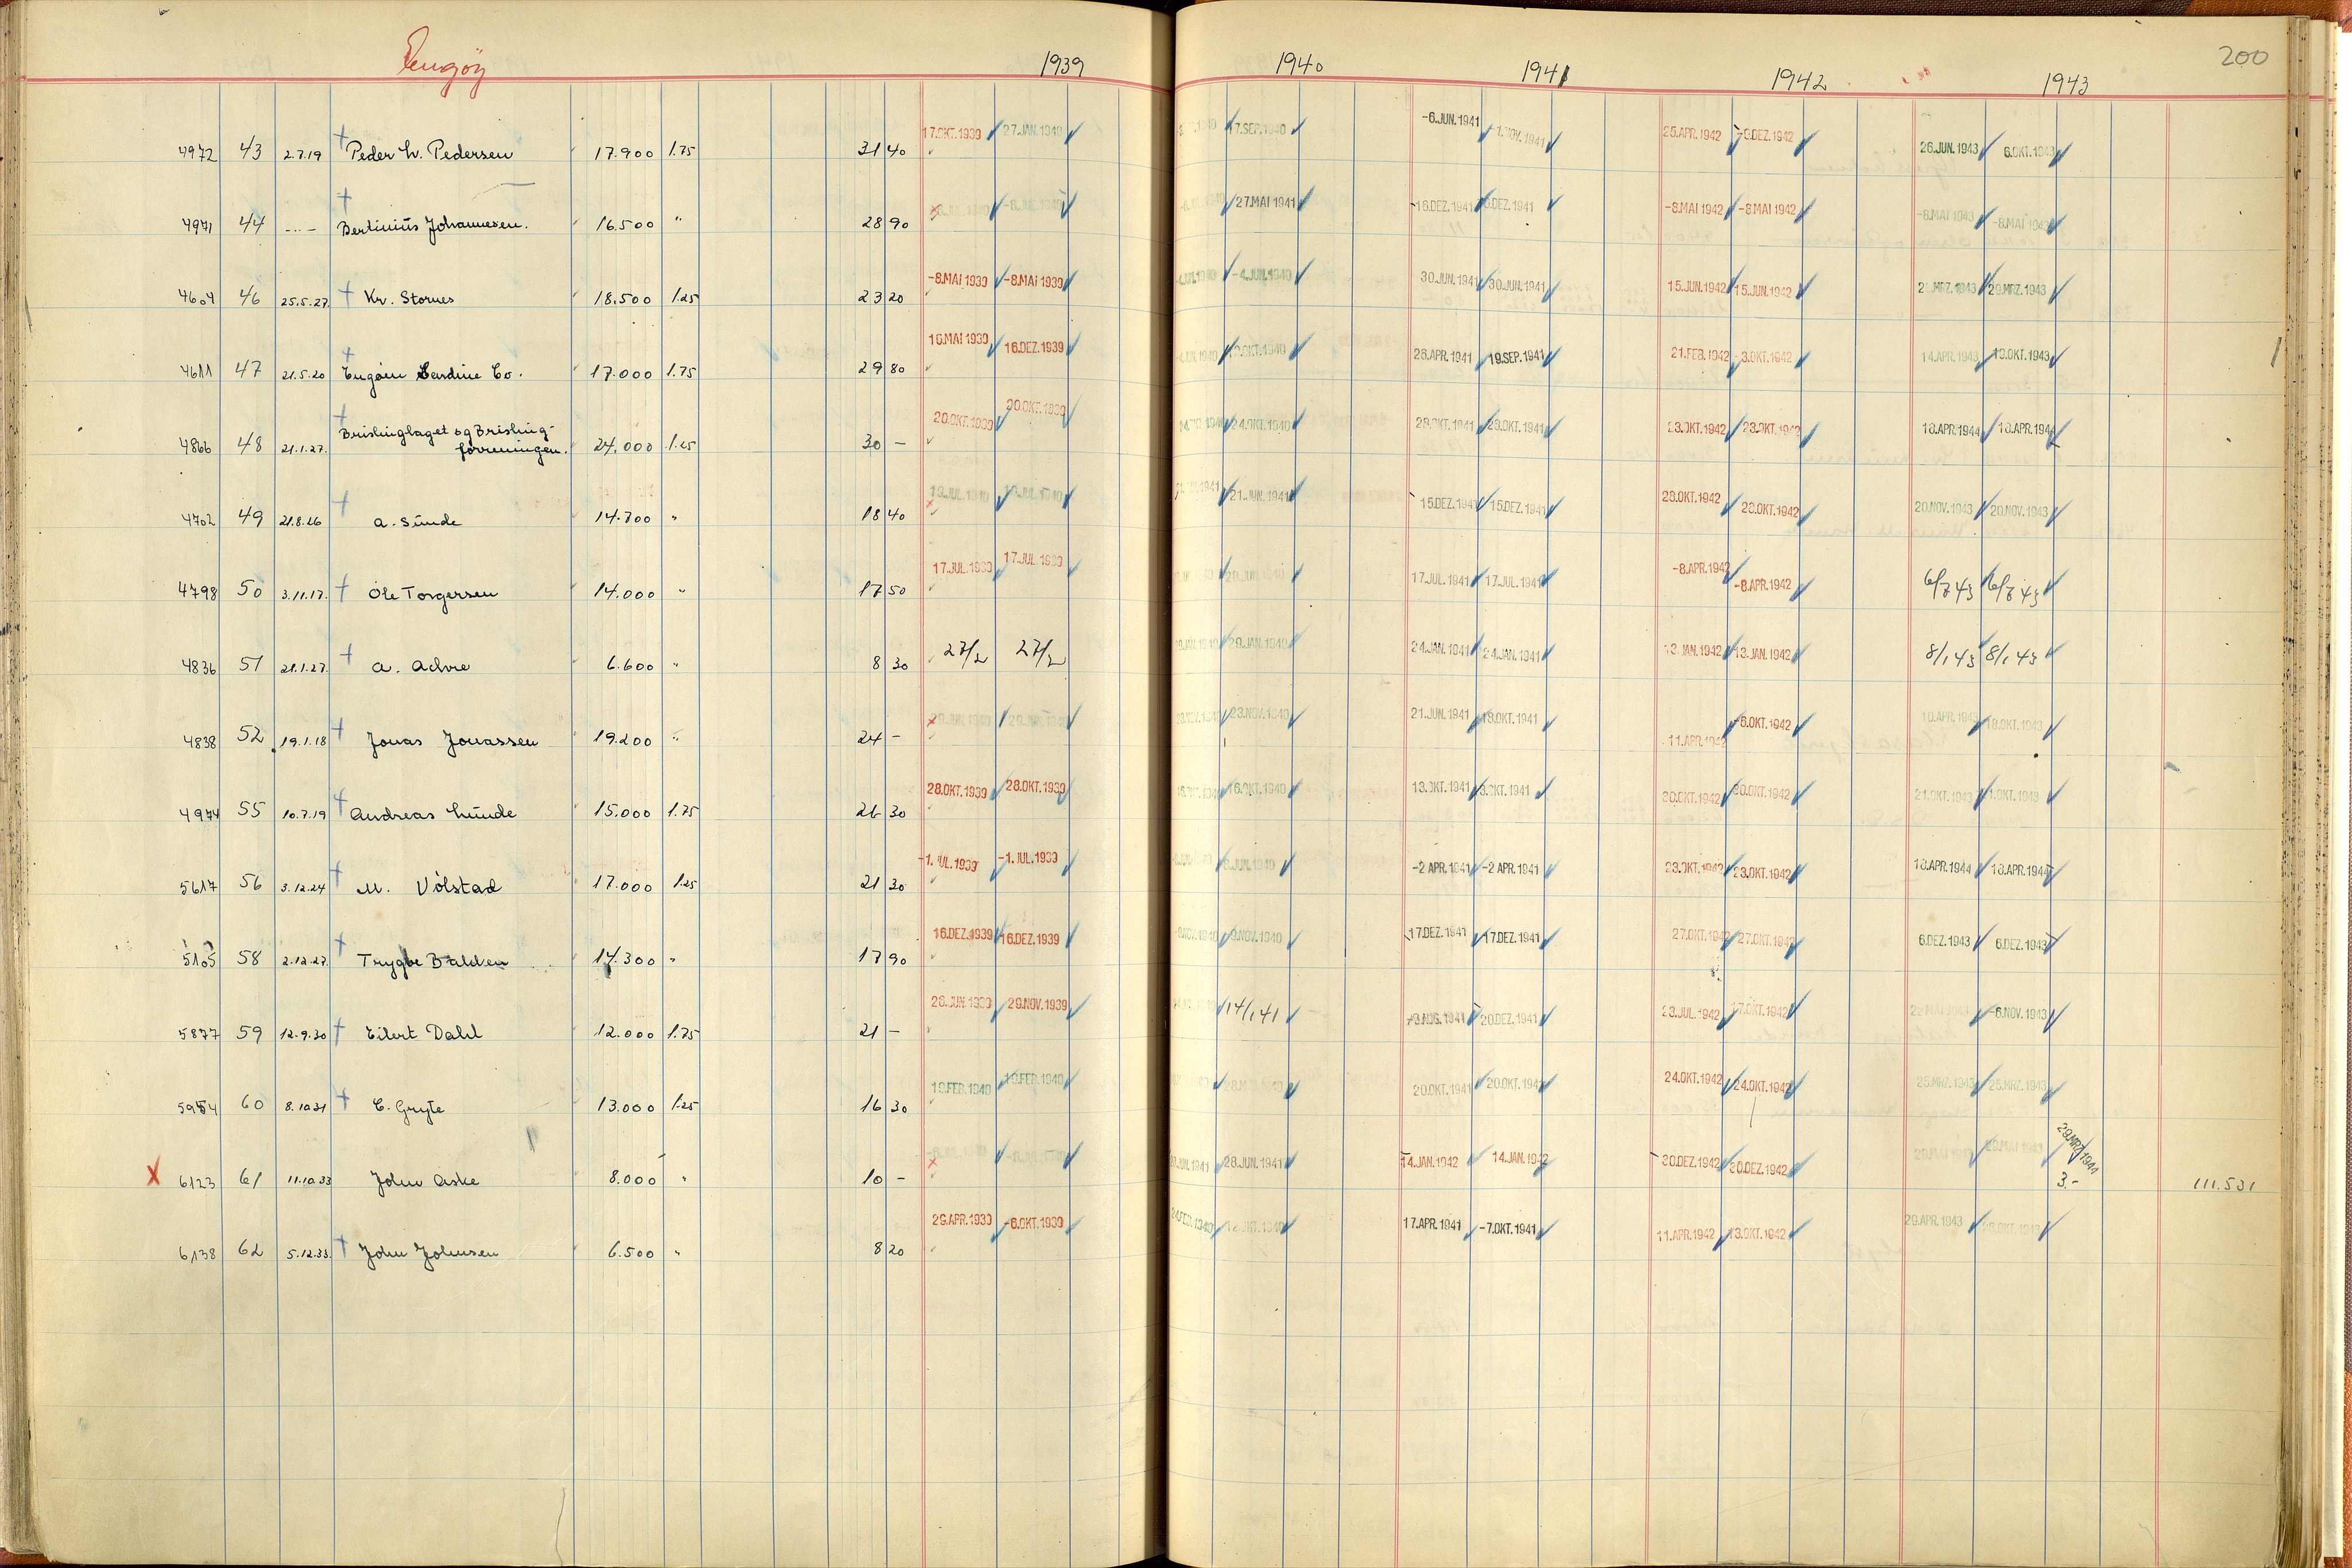 Engöy 1939 1940 1941 1942 1943 200
4972 43 2.7.19 Peder W. Pedersen 17.900 1.75 31 40 17.OKT.1939 27.JAN.1940 17.SEP.1940 -6.JUN.1941 -1.NOV.1941 25.APR.1942 -9.DEZ.1942 26.JUN.1943 6.OKT.1943
4971 44 -..- Bertinius Johannesen. 16.500 " 28 90 27.MAI 1941 16.DEZ.1941 DEZ.1941 -8.MAI 1942 -8.MAI 1942 -8.MAI 1943 -8.MAI 1943
4604 46 25.5.27. Kr. Stornes 18.500 1.25 23 20 -8.MAI 1939 -8.MAI 1939 -4.JUN.1940 -4.JUN.1940 30.JUN.1941 30.JUN.1941 15.JUN.1942 15.JUN.1942 29.MRZ.1943 29.MRZ.1943
4611 47 21.5.20 Engöen Sardine Co. 17.000 1.75 29 80 16.MAI 1939 16.DEZ.1939 OKT.1940 26.APR.1941 19.SEP.1941 21.FEB.1942 -3.OKT.1942 14.APR.1943 19.OKT.1943
4866 48 21.1.27. Brislinglaget og Brisling-
foreningen. 24.000 1.25 30 - 20.OKT.1939 20.OKT.1939 24.OKT.1940 24.OKT.1940 28.OKT.1941 28.OKT.1941 23.OKT.1942 23.OKT.1942 18.APR.1944 18.APR.1944
4702 49 21.8.26 A. Sunde 14.700 " 18 40 21.JUN.1941 15.DEZ.1941 15.DEZ.1941 28.OKT.1942 28.OKT.1942 20.NOV.1943 20.NOV.1943
4798 50 3.11.17. Ole Torgersen 14.000 " 17 50 17.JUL.1939 17.JUL.1939 17.JUL.1941 17.JUL.1941 -8.APR.1942 -8.APR.1942 6/7 43 6/7 43
4836 51 21.1.27. A. Achre 6.600 " 8 30 27/2 27/2 29.JAN.1940 29.JAN.1940 24.JAN.1941 24.JAN.1941 13.JAN.1942 13.JAN.1942 8/1 43 8/1 43
4838 52 19.1.18 Jonas Jonassen 19.200 " 24 - 23.NOV.1940 23.NOV.1940 21.JUN.1941 18.OKT.1941 11.APR.1942 -6.OKT.1942 10.APR.1943 18.OKT.1943
4974 55 10.7.19 Andreas Lunde 15.000 1.75 26 30 28.OKT.1939 28.OKT.1939 16.OKT.1940 16.OKT.1940 13.OKT.1941 OKT.1941 30.OKT.1942 30.OKT.1942 21.OKT.1943 OKT.1943
5617 56 3.12.24 M. Vølstad 17.000 1.25 21 30 -1.JUL.1939 -1.JUL.1939 JUN.1940 -2 APR.1941 -2 APR.1941 23.OKT.1942 23.OKT.1942 18.APR.1944 18.APR.1944
5105 58 2.12.27. Trygve Bakken 14.300 " 17 90 16.DEZ.1939 16.DEZ.1939 NOV.1940 NOV.1940 17.DEZ.1941 17.DEZ.1941 27.OKT.1942 27.OKT.1942 6.DEZ.1943 6.DEZ.1943
5877 59 12.9.30 Eilert Dahl 12.000 1.75 21 - 26.JUN.1939 29.NOV.1939 14/1 41 AUG.1941 20.DEZ.1941 23.JUL.1942 17.OKT.1942 22 MAI 1943 -6.NOV.1943
5954 60 8.10.31 C. Gryte 13.000 1.25 16 30 19.FEB.1940 19.FEB.1940 20.OKT.1941 20.OKT.1941 24.OKT.1942 24.OKT.1942 25.MRZ.1943 25.MRZ.1943
X 6123 61 11.10.33 John Aske 8.000 " 10 - 28.JUN.1941 28.JUN.1941 14.JAN.1942 14.JAN.1942 30.DEZ.1942 30.DEZ.1942 29.MAI 1943 29.MAI 1943 29.MRZ 1944 3.- 111.531
6138 62 5.12.33. John Johnsen 6.500 " 8 20 29.APR.1939 -6.OKT.1939 17.APR.1941 -7.OKT.1941 11.APR.1942 13.OKT.1942 29.APR.1943 OKT.1943